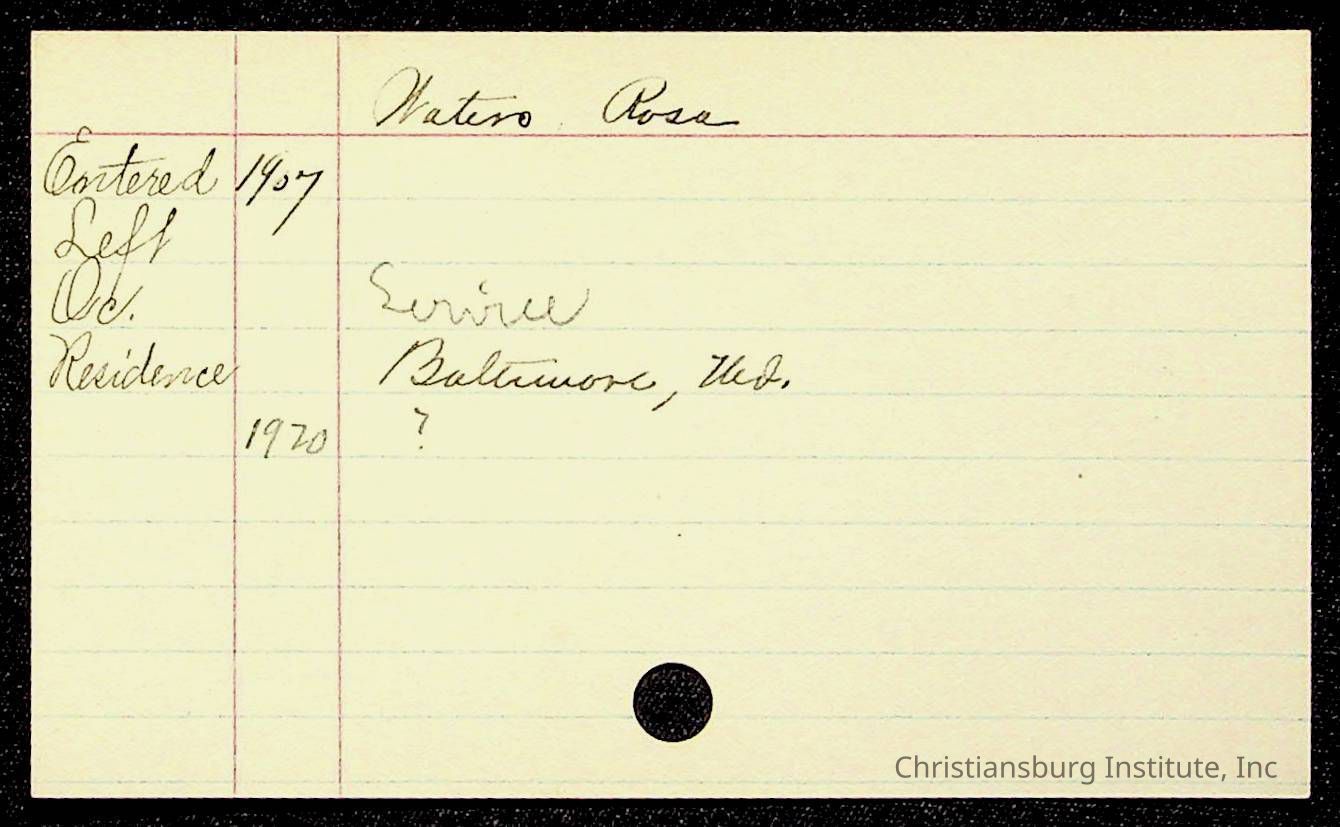 Waters Rosa
Entered 1907
Left
Oc. Service
Residence Baltimore, Md.
1920 ?
Christiansburg Institute, Inc